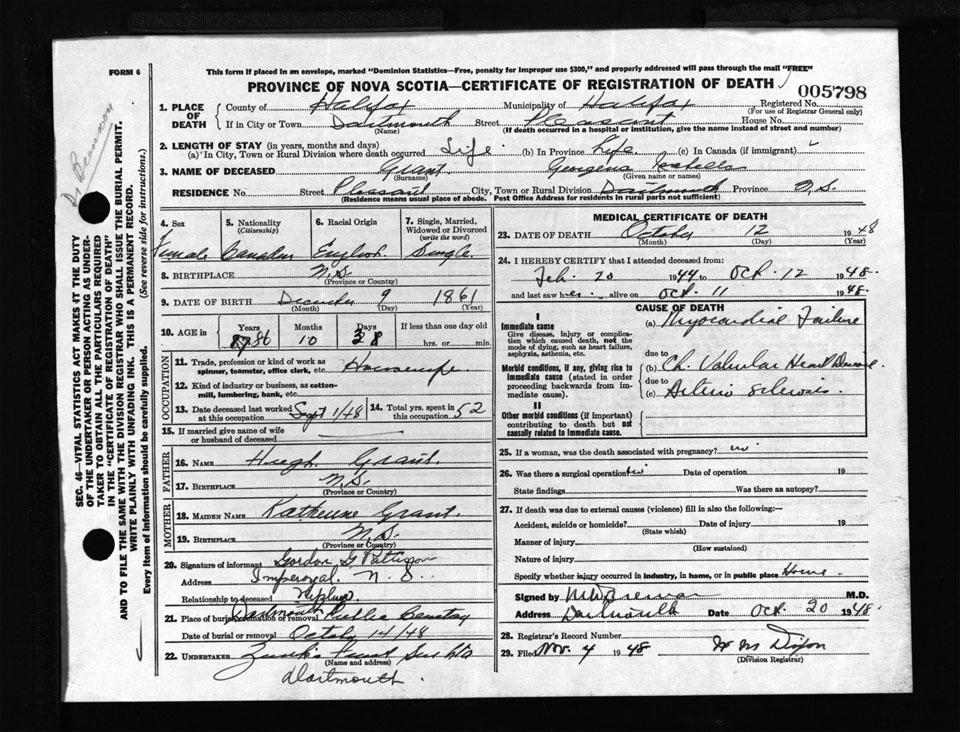 FORM 6
This form if placed in an envelope, marked "Dominion Statistics—Free, penalty for improper use $300," and properly addressed will pass through the mail "FREE"
PROVINCE OF NOVA SCOTIA—CERTIFICATE OF REGISTRATION OF DEATH
005798
1. PLACE OF DEATH
County of Halifax Municipality of Halifax Registered No.
(For use of Registrar General only)
If in City or Town Dartmouth Street Pleasant House No.
(Name) (If death occurred in a hospital or institution, give the name instead of street and number)
2. LENGTH OF STAY (in years, months and days)
(a) In City, Town or Rural Division where death occurred Life (b) In Province Life (c) In Canada (if immigrant)
3. NAME OF DECEASED Grant Georgena Isabella
(Surname) (Given name or names)
RESIDENCE No. Street Pleasant City, Town or Rural Division Dartmouth Province N.S.
(Residence means usual place of abode. Post Office Address for residents in rural parts not sufficient)
4. Sex Female
5. Nationality (Citizenship) Canadian
6. Racial Origin English
7. Single, Married, Widowed or Divorced (write the word) Single
8. BIRTHPLACE N.S.
(Province or Country)
9. DATE OF BIRTH December 9 1861
(Month) (Day) (Year)
10. AGE in Years 86 Months 10 Days 3 If less than one day old
hrs. or min.
OCCUPATION
11. Trade, profession or kind of work as spinner, teamster, office clerk, etc. Housewife
12. Kind of industry or business, as cotton-mill, lumbering, bank, etc.
13. Date deceased last worked at this occupation Sept 1/48
14. Total yrs. spent in this occupation 52
15. If married give name of wife or husband of deceased
FATHER
16. NAME Hugh Grant
17. BIRTHPLACE N.S.
(Province or Country)
MOTHER
18. MAIDEN NAME Katherine Grant
19. BIRTHPLACE N.S.
(Province or Country)
20. Signature of informant Gordon G Pattison
Address Imperoyal. N.S.
Relationship to deceased Nephew
21. Place of burial, cremation or removal Dartmouth Public Cemetery
Date of burial or removal October 14/48
22. UNDERTAKER
(Name and address)
Dartmouth.
MEDICAL CERTIFICATE OF DEATH
23. DATE OF DEATH October 12 1948
(Month) (Day) (Year)
24. I HEREBY CERTIFY that I attended deceased from:
Feb. 20 1944 to Oct. 12 1948
and last saw her alive on Oct. 11 1948
CAUSE OF DEATH
I
Immediate cause
Give disease, injury or complication which caused death, not the mode of dying, such as heart failure, asphyxia, asthenia, etc.
(a) Myocardial Failure
due to
Morbid conditions, if any, giving rise to immediate cause (stated in order proceeding backwards from immediate cause).
(b) Ch. Valvular Heart Disease
due to
(c) Arterio sclerosis
II
Other morbid conditions (if important) contributing to death but not causally related to immediate cause.
25. If a woman, was the death associated with pregnancy? no
26. Was there a surgical operation? no Date of operation 19
State findings Was there an autopsy?
27. If death was due to external causes (violence) fill in also the following:—
Accident, suicide or homicide? Date of injury 19
(State which)
Manner of injury
(How sustained)
Nature of injury
Specify whether injury occurred in industry, in home, or in public place Home
Signed by M.D.
Address Dartmouth Date Oct. 20 1948
28. Registrar's Record Number
29. Filed Nov. 4 1948
(Division Registrar)
SEC. 46—VITAL STATISTICS ACT MAKES IT THE DUTY OF THE UNDERTAKER OR PERSON ACTING AS UNDERTAKER TO OBTAIN ALL THE PARTICULARS REQUIRED IN THE "CERTIFICATE OF REGISTRATION OF DEATH" AND TO FILE THE SAME WITH THE DIVISION REGISTRAR WHO SHALL ISSUE THE BURIAL PERMIT.
WRITE PLAINLY WITH UNFADING INK. THIS IS A PERMANENT RECORD.
Every item of information should be carefully supplied. (See reverse side for instructions.)